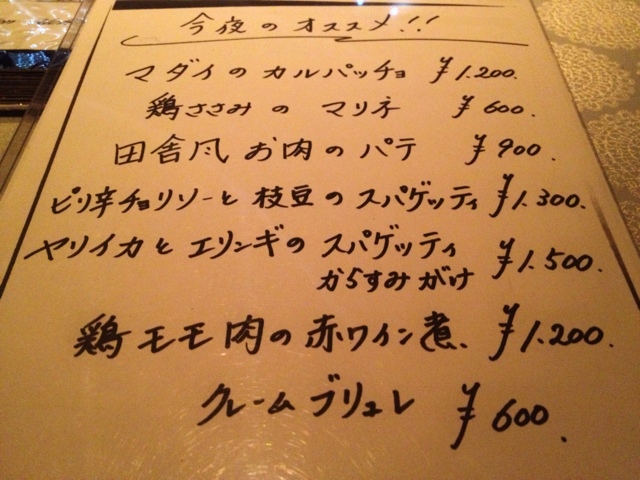 今夜のオススメ!!
マダイのカルパッチョ ¥1.200.
鶏ささみのマリネ ¥600.
田舎风お肉のパテ ¥900.
ピリ辛チョリソーと枝豆のスパゲッティ ¥1.300.
ヤリイカとエリンギのスパゲッティ ¥1.500.
からすみがけ
鶏モモ肉の赤ワイン煮. ¥1.200.
クレームブリュレ ¥600.